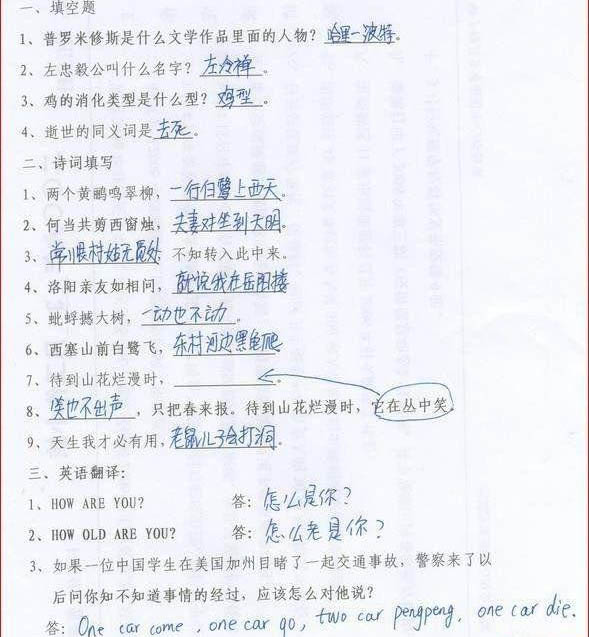 一、填空题
1、普罗米修斯是什么文学作品里面的人物？哈里-波特。
2、左忠毅公叫什么名字？左冷禅。
3、鸡的消化类型是什么型？鸡型。
4、逝世的同义词是去死。
二、诗词填写
1、两个黄鹂鸣翠柳，一行白鹭上西天。
2、何当共剪西窗烛，夫妻对坐到天明。
3、常恨村姑无觅处，不知转入此中来。
4、洛阳亲友如相问，就说我在岳阳楼
5、蚍蜉撼大树，一动也不动。
6、西塞山前白鹭飞，东村河边黑龟爬
7、待到山花烂漫时，________。
8、俏也不出声，只把春来报。待到山花烂漫时，它在丛中笑。
9、天生我才必有用，老鼠儿子会打洞。
三、英语翻译：
1、HOW ARE YOU? 答：怎么是你？
2、HOW OLD ARE YOU? 答：怎么老是你？
3、如果一位中国学生在美国加州目睹了一起交通事故，警察来了以
后问你知不知道事情的经过，应该怎么对他说？
答：One car come, one car go, two car pengpeng, one car die.